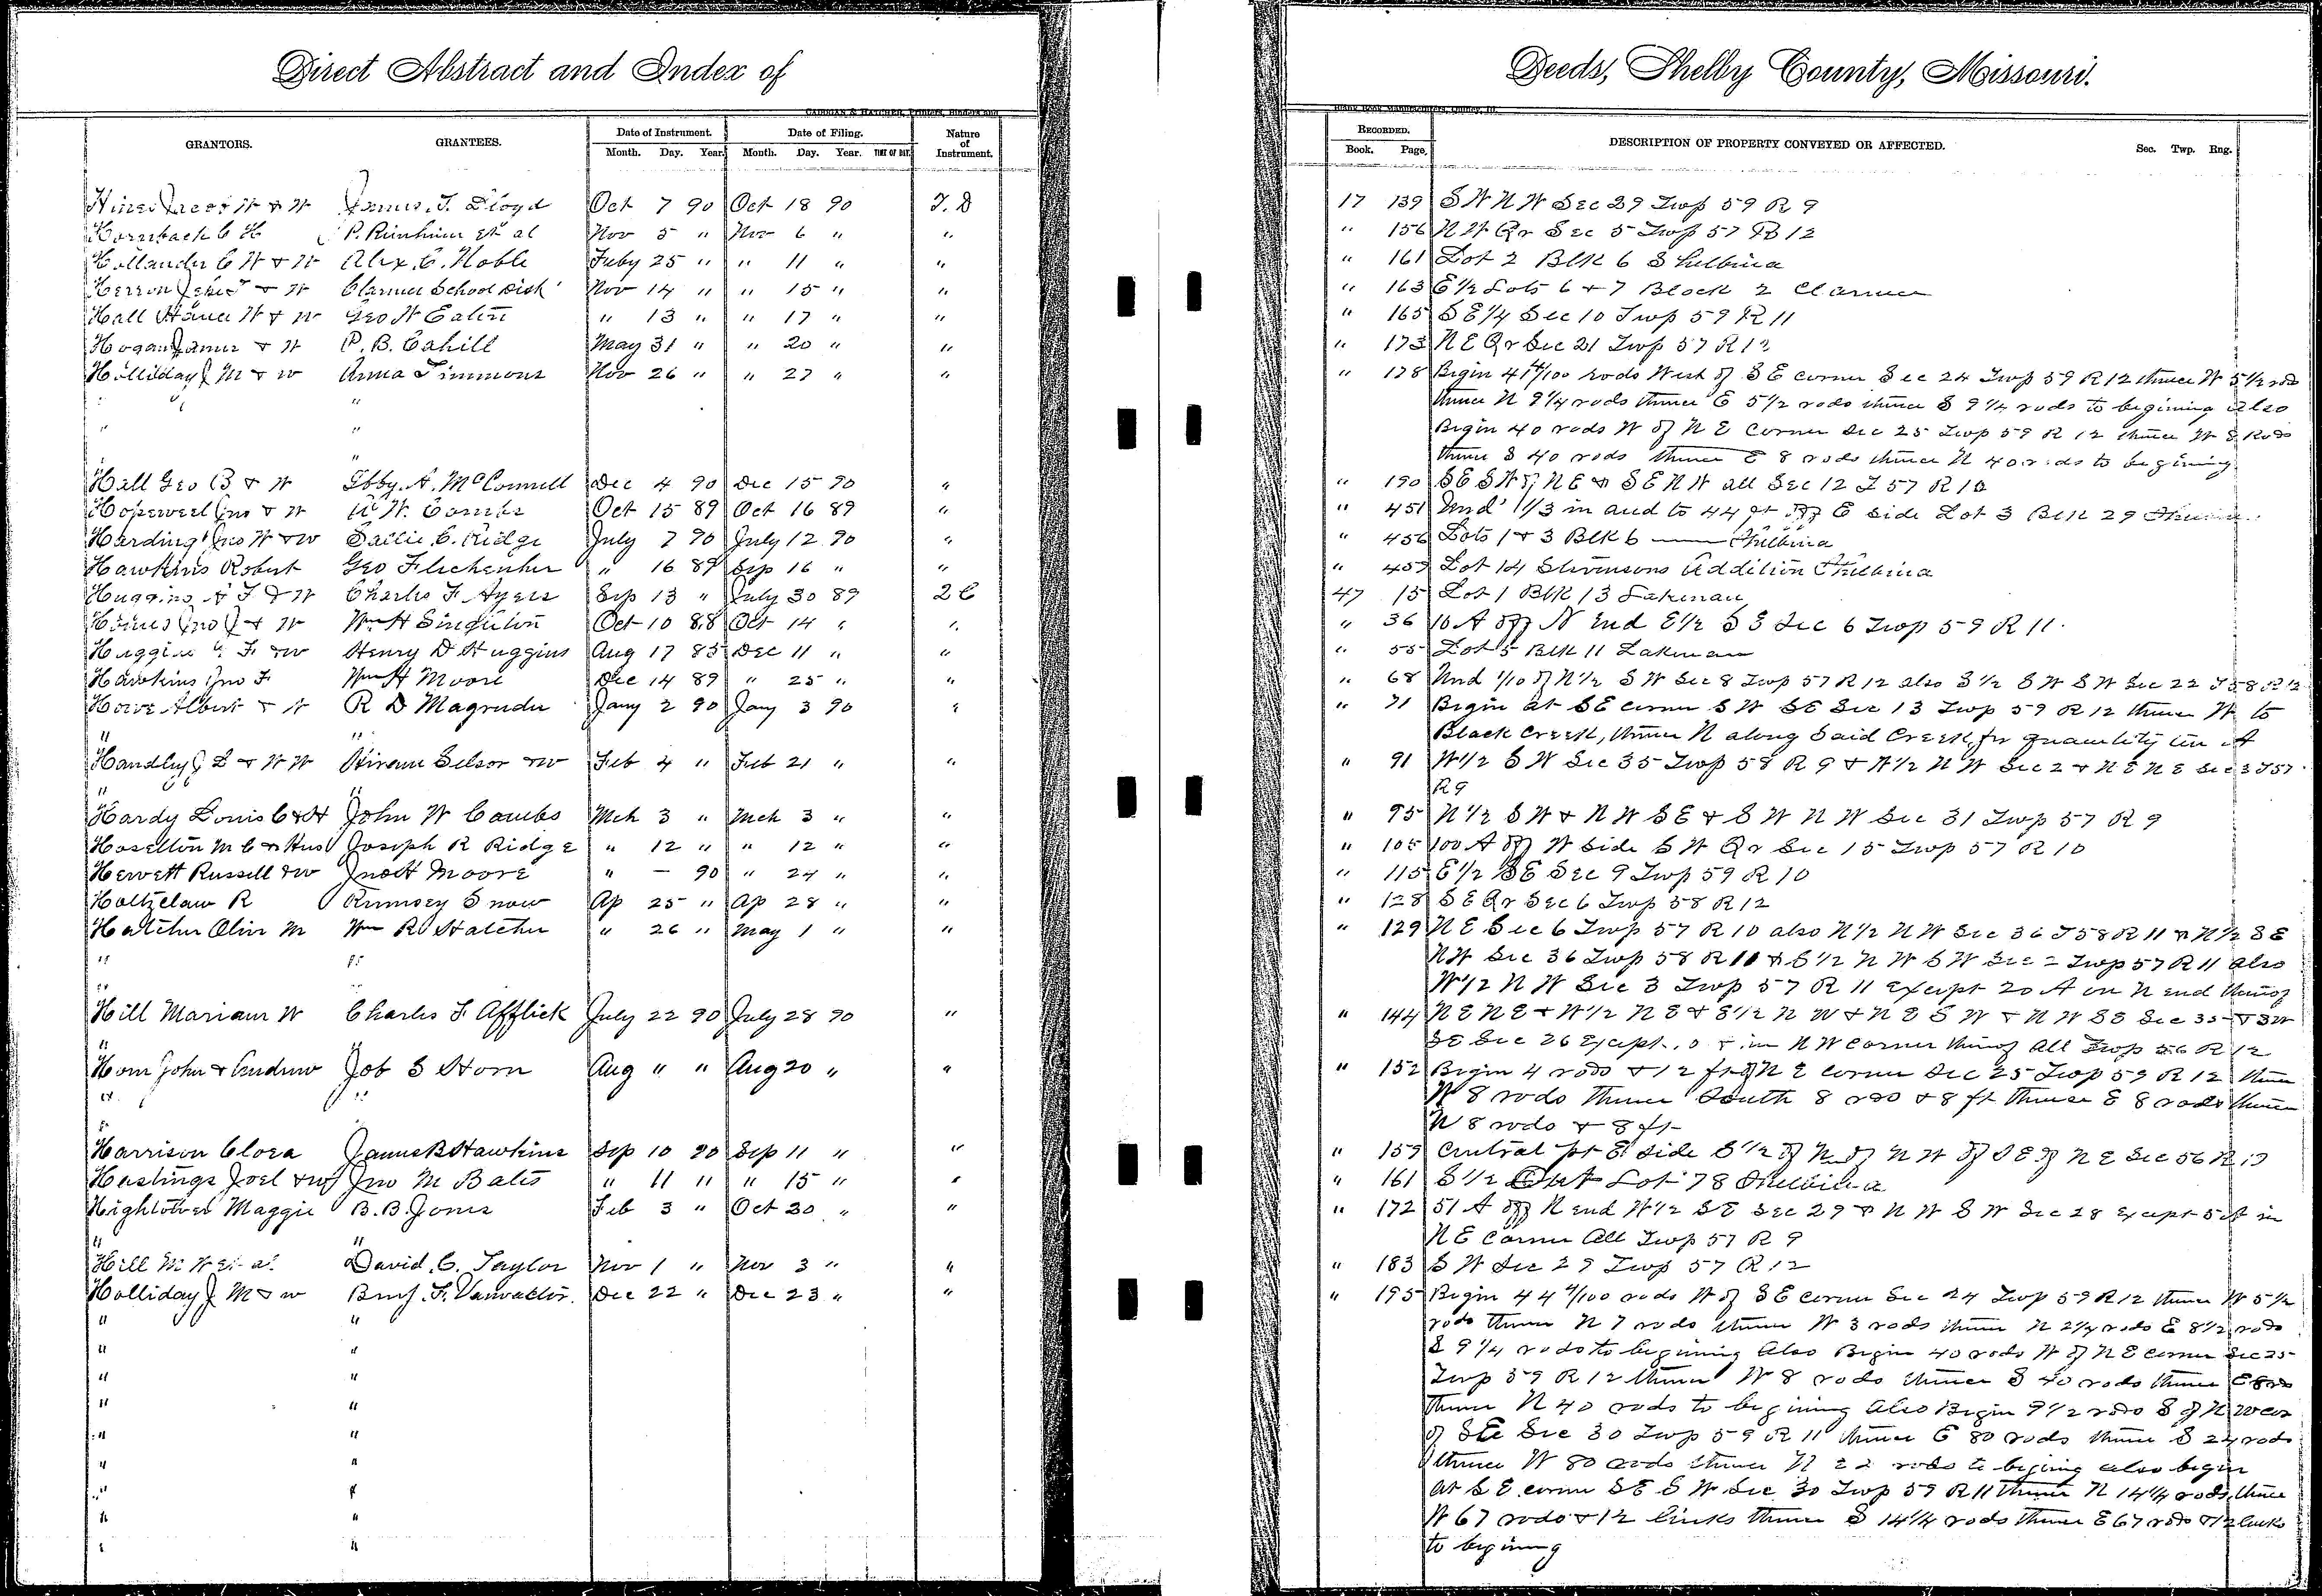 Direct Abstract and Index of
Deeds, Shelby County, Missouri.
GRANTORS. GRANTEES. Date of Instrument. Month. Day. Year. Date of Filing. Month. Day. Year. TIME OF DAY. Nature of Instrument.
RECORDED. Book. Page. DESCRIPTION OF PROPERTY CONVEYED OR AFFECTED. Sec. Twp. Rng.
Hines Jacob W & W James T. Lloyd Oct 7 90 Oct 18 90 T. D 17 139 S W N W Sec 29 Twp 59 R 9
Hornback C H P. Rinhim et al Nov 5 " Nov 6 " " " 156 N W Qr Sec 5 Twp 57 R 12
Hollander C W & W Alex. C. Noble Feby 25 " " 11 " " " 161 Lot 2 Blk 6 Shelbina
Herron & W Clarence School Dist Nov 14 " " 15 " " " 163 E 1/2 Lots 6 & 7 Block 2 Clarence
Hall W & W Geo W Eaton " 13 " " 17 " " " 165 S E 1/4 Sec 10 Twp 59 R 11
Hogan James & W P. B. Cahill May 31 " " 20 " " " 173 N E Qr Sec 21 Twp 57 R 12
Holliday J M & W Anna Timmons Nov 26 " " 27 " " " 178 Begin 41 4/100 rods West of S E corner Sec 24 Twp 59 R 12 thence W 5 1/2 rods
" " thence N 9 1/4 rods thence E 5 1/2 rods thence S 9 1/4 rods to begining also
" " Begin 40 rods W of N E Corner Sec 25 Twp 59 R 12 thence W 8 Rods
" " thence S 40 rods thence E 8 rods thence N 40 rods to begining
Hall Geo B & W Ibby. A. McConnell Dec 4 90 Dec 15 90 " " 190 S E S W of N E & S E N W all Sec 12 T 57 R 10
Hopewell Jno & W W. Combs Oct 15 89 Oct 16 89 " " 451 Und 1/3 in and to 44 ft off E side Lot 3 Blk 29
Harding Jno W & W Sallie C. Ridge July 7 90 July 12 90 " " 456 Lots 1 & 3 Blk 6 Shelbina
Hawkins Robert Geo " 16 89 Sep 16 " " " 459 Lot 14 Stevensons Addition Shelbina
Huggins A F & W Charles F. Ayers Sep 13 " July 30 89 2 C 47 15 Lot 1 Blk 13 Lakenan
Jno J & W Wm H Singleton Oct 10 88 Oct 14 " " " 36 10 A off N End E 1/2 S E Sec 6 Twp 59 R 11.
Huggins F & W Henry D Huggins Aug 17 85 Dec 11 " " " 55 Lot 5 Blk 11 Lakenan
Hawkins Jno F Wm H Moore Dec 14 89 " 25 " " " 68 Und 1/10 of N 1/2 S W Sec 8 Twp 57 R 12 also S 1/2 S W S W Sec 22 T 58 R 12
Howe Albert & W R D Magruder Jany 2 90 Jany 3 90 " " 71 Begin at S E corner S W S E Sec 13 Twp 59 R 12 thence W to
" " Black Creek, thence N along said Creek for quantity
Handley J L & W W Hiram Selsor & W Feb 4 " Feb 21 " " " 91 W 1/2 S W Sec 35 Twp 58 R 9 & W 1/2 N W Sec 2 & N E N E Sec 3 T 57
" " R 9
Hardy Louis C & W John W Combs Mch 3 " Mch 3 " " " 95 N 1/2 S W & N W S E & S W N W Sec 31 Twp 57 R 9
Haselton M C & Hus Joseph R Ridge " 12 " " 12 " " " 105 100 A off W side S W Qr Sec 15 Twp 57 R 10
Hewett Russell & W Jno H Moore " — 90 " 24 " " " 115 E 1/2 S E Sec 9 Twp 59 R 10
Holtzclaw R Rumsey Snow Ap 25 " Ap 28 " " " 128 S E Qr Sec 6 Twp 58 R 12
Hatcher Olin M Wm R Hatcher " 26 " May 1 " " " 129 N E Sec 6 Twp 57 R 10 also N 1/2 N W Sec 36 T 58 R 11 & N 1/2 S E
" " N W Sec 36 Twp 58 R 11 & S 1/2 N W S W Sec 2 Twp 57 R 11 also
" " W 1/2 N W Sec 3 Twp 57 R 11 except 20 A on N end thereof
Hill Mariam W Charles F Afflick July 22 90 July 28 90 " " 144 N E N E & W 1/2 N E & E 1/2 N W & N E S W & N W S E Sec 35 & S W
" S E Sec 26 Except in N W corner thereof all Twp 56 R 12
Horn John & Andrew Job S Horn Aug " " Aug 20 " " " 152 Begin 4 rods & 12 ft of N E corner Sec 25 Twp 59 R 12 thence
" " W 8 rods thence South 8 rods & 8 ft thence E 8 rods thence
" N 8 rods & 8 ft
Harrison Clora James B Hawkins Sep 10 90 Sep 11 " " " 159 Central pt E side S 1/2 of N of N W of S E of N E Sec 56 R 10
Hastings Joel & W Jno M Bates " 11 " " 15 " " " 161 S 1/2 Out Lot 78 Shelbina
Hightower Maggie B. B. Jones Feb 3 " Oct 30 " " " 172 51 A off N end W 1/2 S E Sec 29 & N W S W Sec 28 except 5 A in
" " N E Corner all Twp 57 R 9
Hill M W et al David. C. Taylor Nov 1 " Nov 3 " " " 183 S W Sec 29 Twp 57 R 12
Holliday J M & W Benj. F. Vanvactor. Dec 22 " Dec 23 " " " 195 Begin 44 4/100 rods W of S E corner Sec 24 Twp 59 R 12 thence W 5 1/2
" " rods thence N 7 rods thence W 3 rods thence N 2 1/4 rods E 8 1/2 rods
" " S 9 1/4 rods to begining also Begin 40 rods W of N E corner Sec 25
" " Twp 59 R 12 thence W 8 rods thence S 40 rods thence E 8 rods
" " thence N 40 rods to begining also Begin 9 1/2 rods S of N W cor
" " of S E Sec 30 Twp 59 R 11 thence E 80 rods thence S 24 rods
" " thence W 80 rods thence N 22 rods to begining also begin
" " at S E corner S E S W Sec 30 Twp 59 R 11 thence N 14 1/4 rods, thence
" " W 67 rods & 12 links thence S 14 1/4 rods thence E 67 rods & 12 links
" " to begining